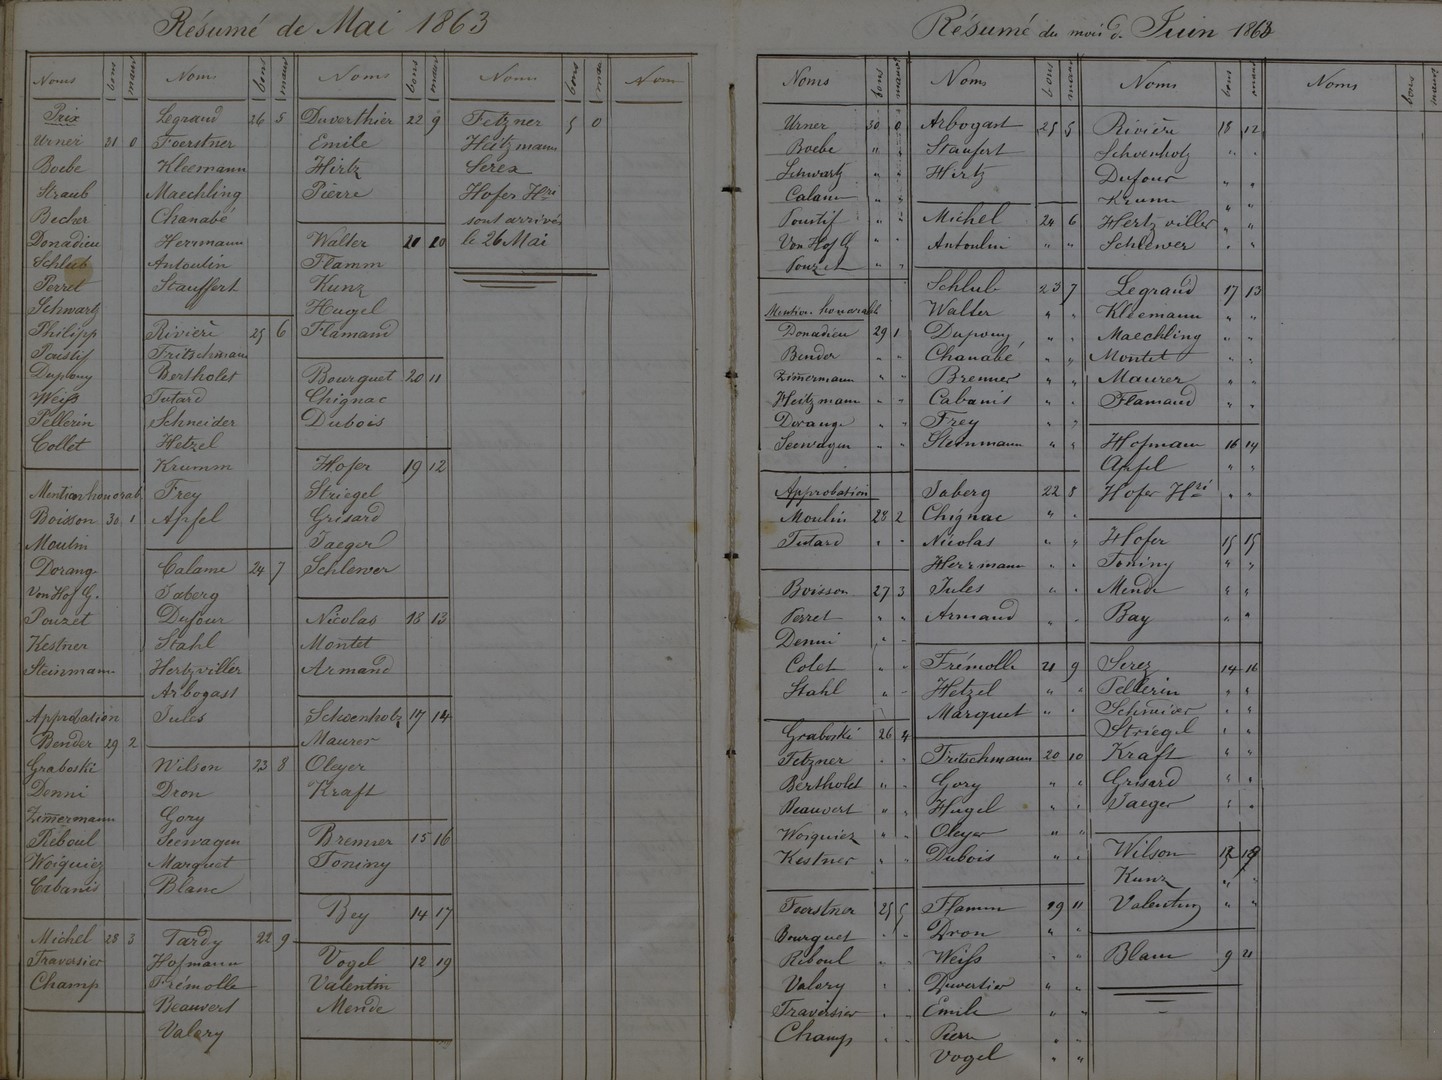 Résumé de Mai 1863
Noms bons mauv
Prix
Urner 31 0
Boebe
Straub
Becher
Donadieu
Schlub
Perret
Schwartz
Philipp
Poustif
Dupouy
Weiss
Pellerin
Collet
Mention honorab
Boisson 30 1
Moulin
Dorange
Von Hof G.
Pouzet
Kestner
Steinmann
Approbation
Bender 29 2
Graboski
Denni
Zimermann
Reboul
Woiguiez
Cabanis
Michel 28 3
Traversier
Champ
Noms bons mauv
Legrand 26 5
Foerstner
Kleemann
Maechling
Chanabé
Herrmann
Antoulin
Stauffert
Rivière 25 6
Fritschmann
Bertholet
Tutard
Schneider
Hetzel
Krumm
Frey
Apfel
Calame 24 7
Jaberg
Dufour
Stahl
Hertzviller
Arbogast
Jules
Wilson 23 8
Dron
Gory
Seewagen
Marquet
Blanc
Tardy 22 9
Hofmann
Frémolle
Beauvert
Valery
Noms bons mauv
Duverthier 22 9
Emile
Hirtz
Pierre
Walter 21 10
Flamm
Kunz
Hugel
Flamand
Bourquet 20 11
Chignac
Dubois
Hofer 19 12
Striegel
Grisard
Jaeger
Schlewer
Nicolas 18 13
Montet
Armand
Schoenholz 17 14
Maurer
Oleyer
Kraft
Brenner 15 16
Toniny
Bey 14 17
Vogel 12 19
Valentin
Mende
Noms bons mau
Fetzner 5 0
Heitzmann
Serez
Hofer Hri
sont arrivés
le 26 Mai
Nom
Résumé du mois de Juin 1863
Noms bons mauv
Urner 30 0
Boebe " "
Schwartz " "
Calame " "
Poustif " "
Von Hof G " "
Pouzet " "
Mention honorabl
Donadieu 29 1
Bender " "
Zimermann " "
Heitzmann " "
Dorange " "
Seewagen " "
Approbation
Moulin 28 2
Tutard " "
Boisson 27 3
Perret " "
Denni " "
Colet " "
Stahl " "
Graboski 26 4
Fetzner " "
Bertholet " "
Beauvert " "
Woiguiez " "
Kestner " "
Foerstner 25 5
Bourquet " "
Reboul " "
Valery " "
Traversier " "
Champ " "
Noms bons mauv
Arbogast 25 5
Staufert
Hirtz
Michel 24 6
Antoulin " "
Schlub 23 7
Walter " "
Dupouy " "
Chanabé " "
Brenner " "
Cabanis " "
Frey " "
Steinmann " "
Jaberg 22 8
Chignac " "
Nicolas " "
Herrmann " "
Jules " "
Armand " "
Frémolle 21 9
Hetzel " "
Marquet " "
Fritschmann 20 10
Gory " "
Hugel " "
Oleyer " "
Dubois " "
Flamm 19 11
Dron " "
Weiss " "
Duvertier " "
Emile " "
Pierre " "
Vogel " "
Noms bons mauv
Rivière 18 12
Schoenholz " "
Dufour " "
Krumm " "
Hertzviller " "
Schlewer " "
Legrand 17 13
Kleemann " "
Maechling " "
Montet " "
Maurer " "
Flamand " "
Hofmann 16 14
Apfel " "
Hofer Hri " "
Hofer 15 15
Toniny " "
Mende " "
Bay " "
Serez 14 16
Pellerin " "
Striegel " "
Kraft " "
Grisard " "
Jaeger " "
Wilson
Kunz " "
Valentin " "
Blanc 9 21
Noms bons mauv